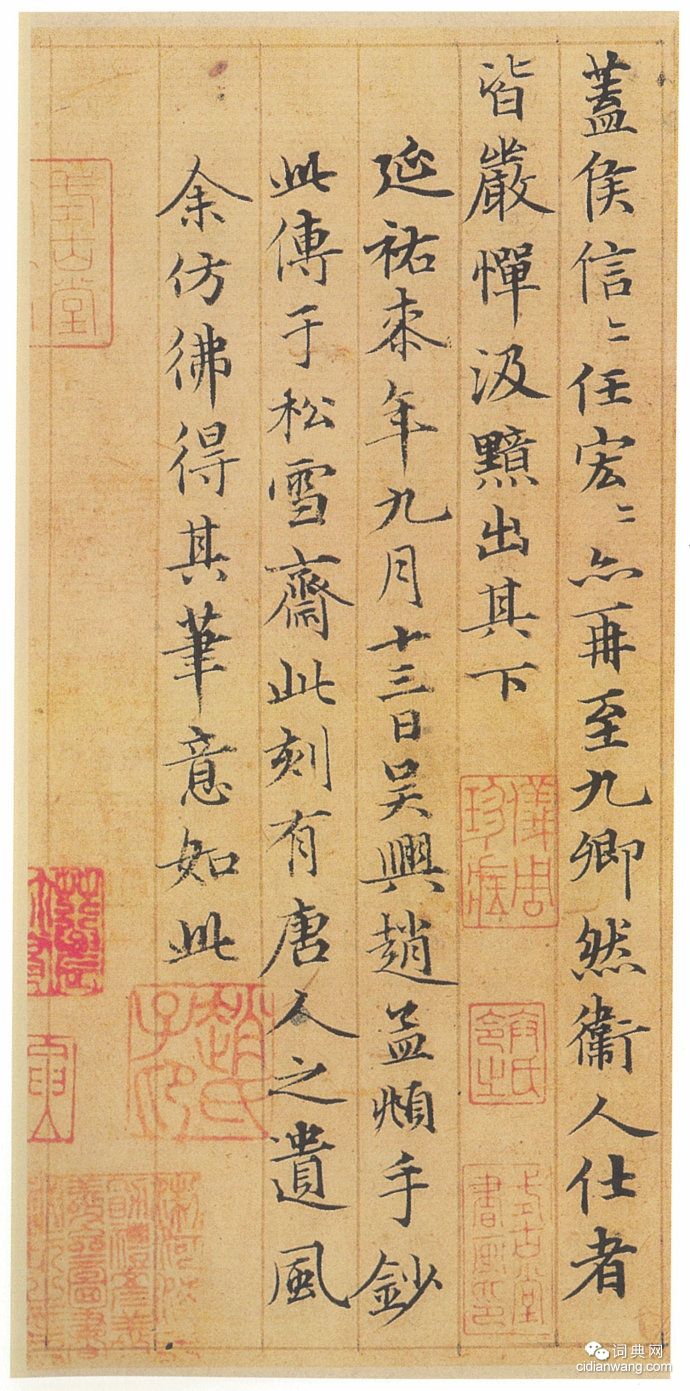 蓋侯信〻任宏〻亦再至九卿然衞人仕者
皆嚴憚汲黯出其下
延祐柒年九月十三日吳興趙孟頫手鈔
此傳于松雪齋此刻有唐人之遺風
余仿彿得其筆意如此
趙氏子印
儀周珍藏
词典网
cidianwang.com